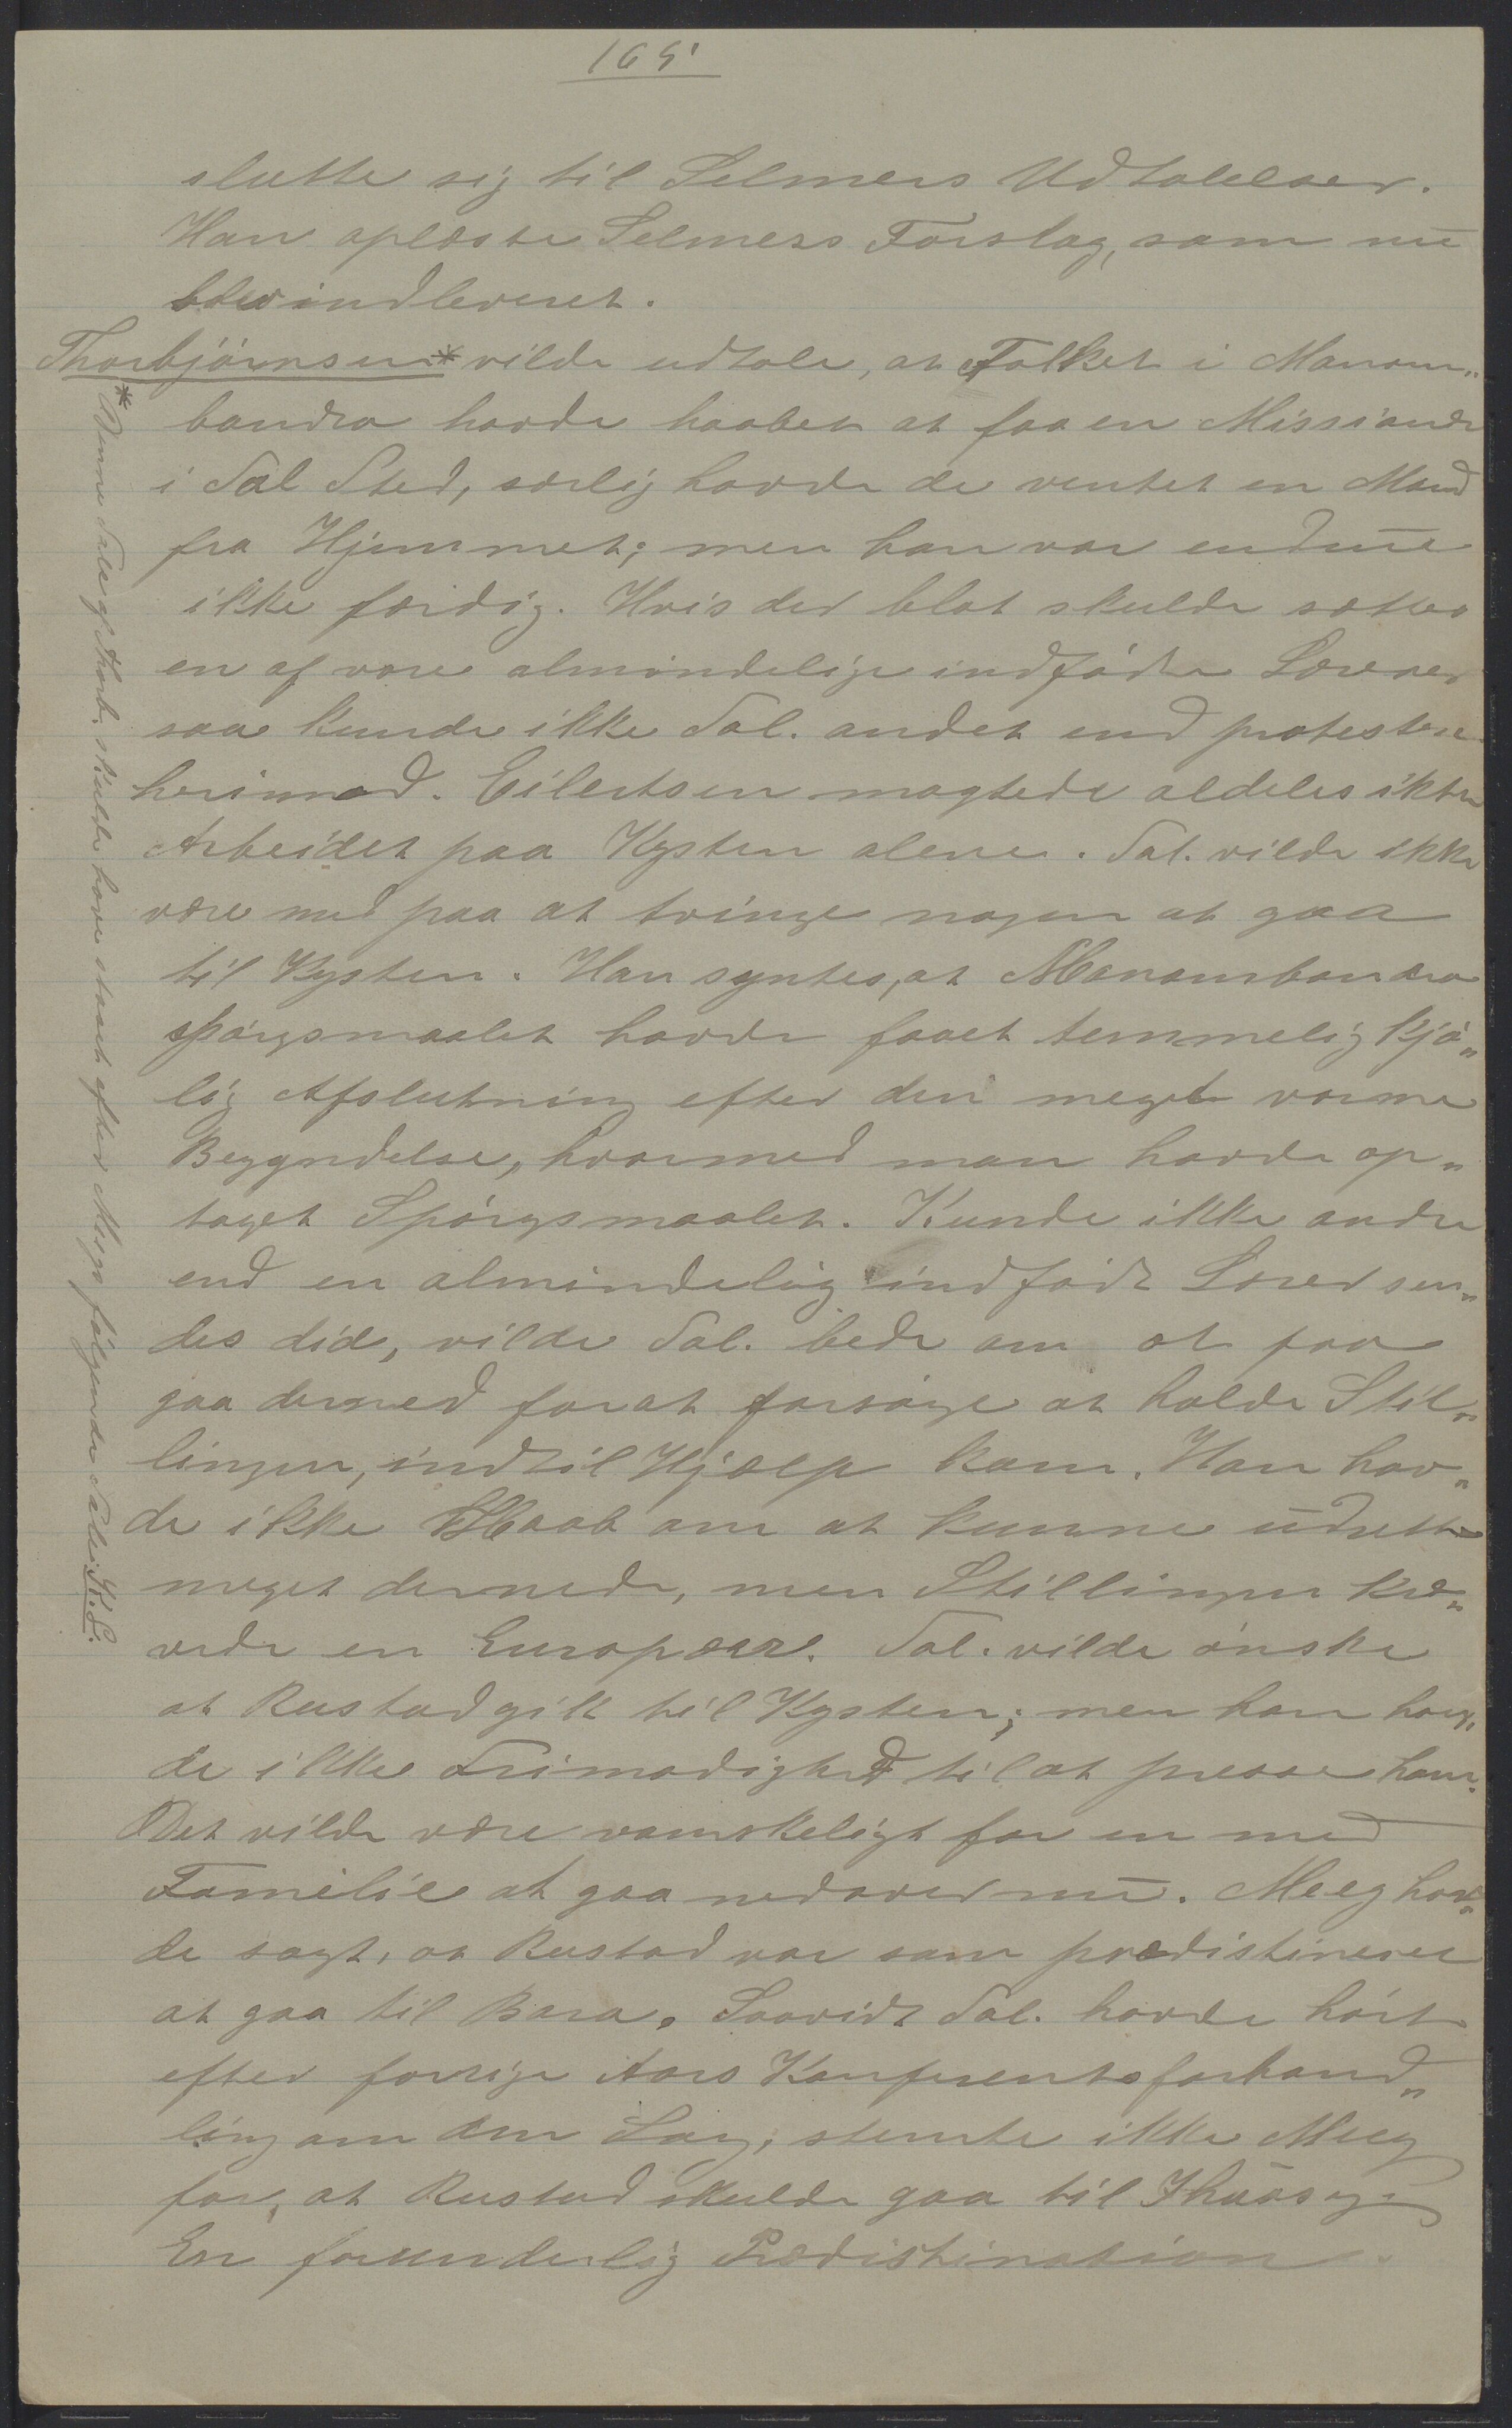 165
slutte sig til Selmers Udtalelser.
Han oplæste Selmers Forslag, som nū
blev indleveret.
Thorbjørnsen* vilde udtale, at Folket i Manam„
bandro havde haabet at faa en Missionær
i Tal Sted, særlig havde de ventet en Mand
fra Hjemmet; men han var endnū
ikke færdig. Hvis der blot skulde sættes
en af vore almindelige indfødte Lærere
saa kunde ikke Tal. andet end protestere
herimod. Eilertsen magtede aldeles ikke
Arbeidet paa Kysten alene. Tal. vilde ikke
være med paa at tvinge nogen at gaa
til Kysten. Han syntes, at Manambondro
spørgsmaalet havde faaet temmelig kjø„
lig Afslutning efter den meget varme
Begyndelse, hvormed man havde op„
taget Spørgsmaalet. Kunde ikke andre
end en almindelig indfødt Lærer sen„
des did, vilde Tal. bede om at faa
gaa derned for at forsøge at holde Stil„
lingen, indtil Hjælp kom. Han hav„
de ikke Haab om at kunne ūdrette
meget dernede, men Stillingen kræ„
vede en Europæer. Tal. vilde ønske
at Rustad gik til Kysten; men han hav„
de ikke Frimodighed til at presse ham.
Det vilde være vanskeligt for en med
Familie at gaa nedover nū. Meeg hav„
de sagt, at Rustad var som prædistineret
at gaa til Bara. Saavidt Tal. havde hørt
efter forrige Aars Konferentsforhand„
ling om den Sag, stemte ikke Meeg
for, at Rustad skulde gaa til Ihūosy.
En forunderlig Prædistination.
* Denne Tale af Thorb. skulde have staaet efter Meegs følgende Tale. K.L.